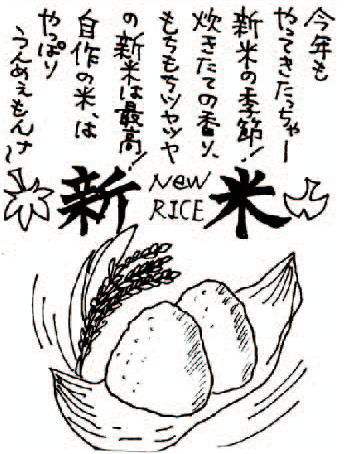 今年も
やってきたっちゃー
新米の季節!
炊きたての香り、
もちもちツヤツヤ
の新米は最高!
自作の米、は
やっぱり
うんめぇもんナ〜
新米
NeW
RICE